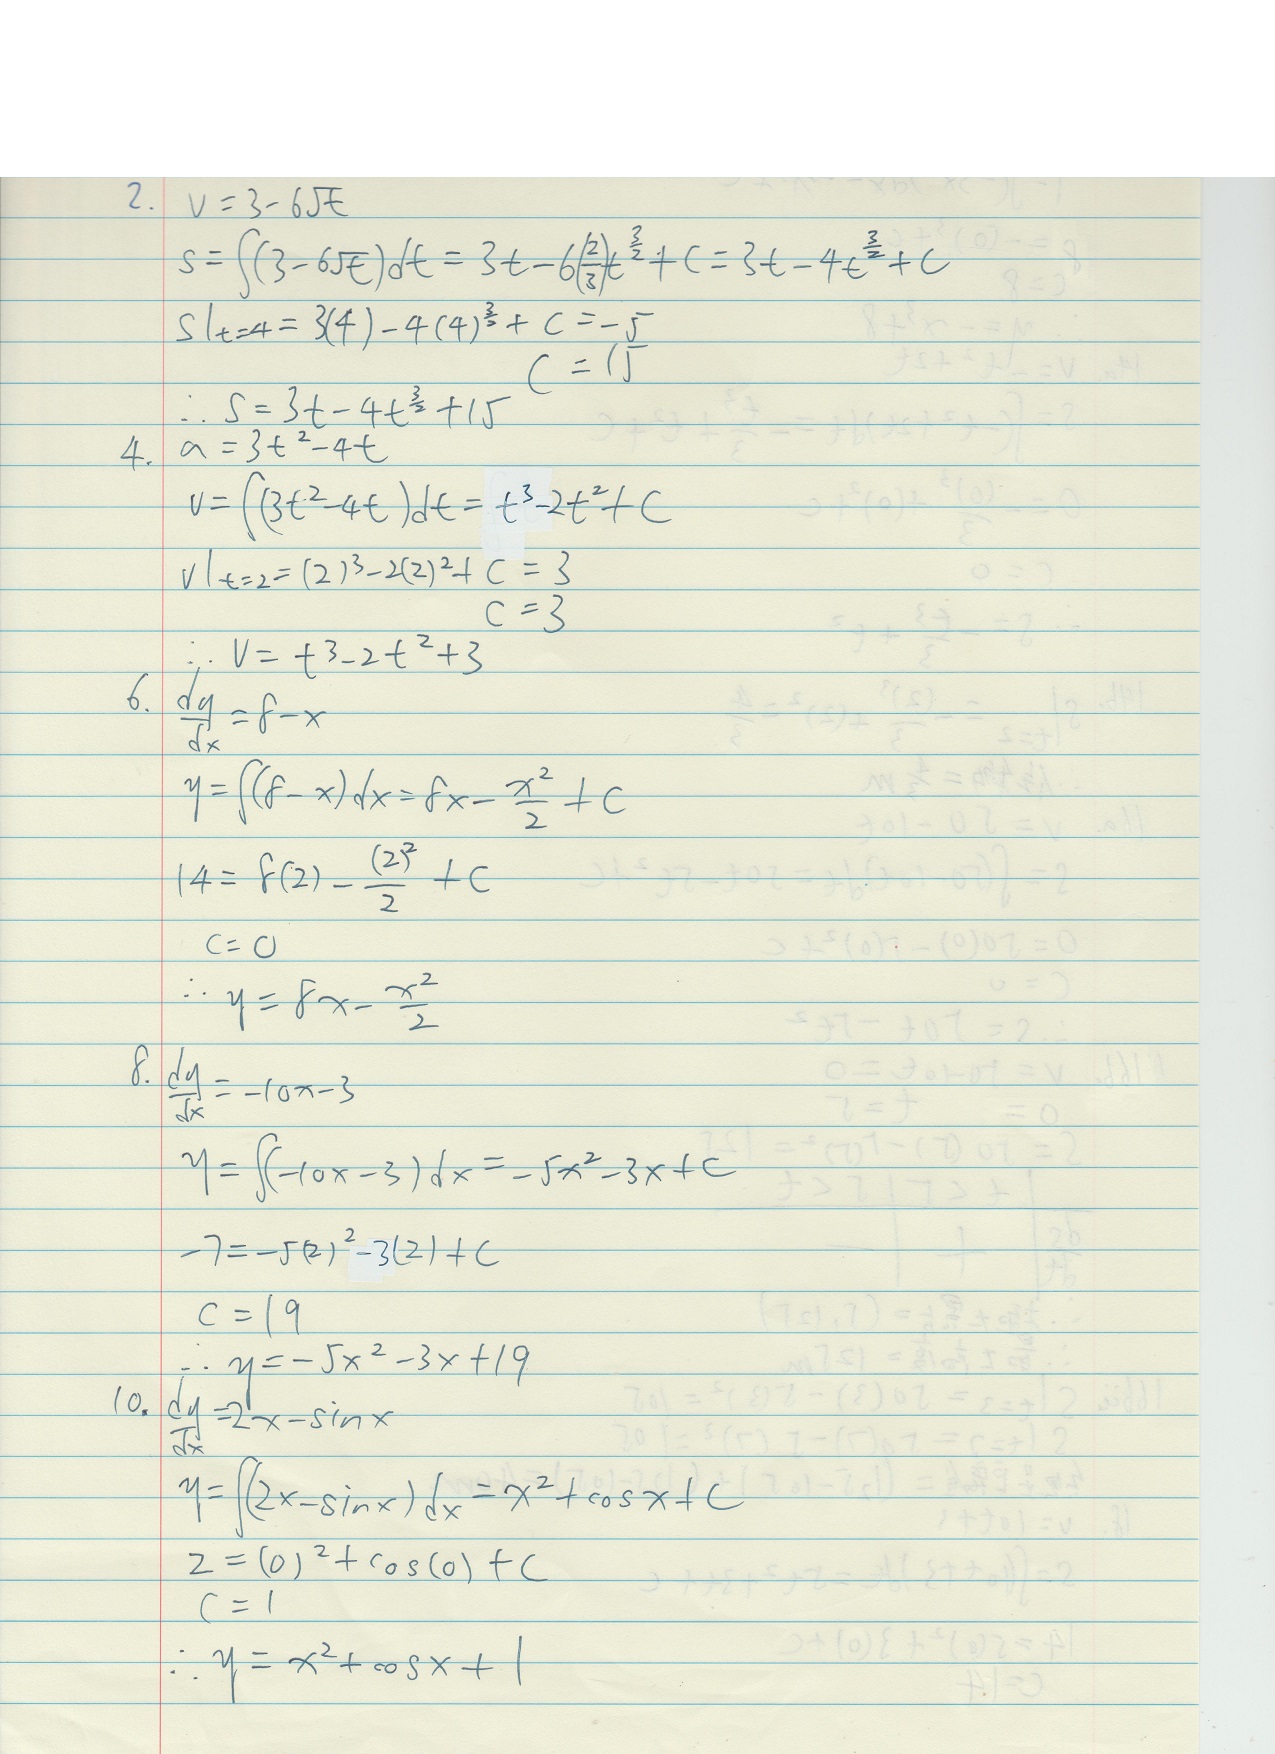 2. v = 3 - 6√t
s = ∫(3 - 6√t)dt = 3t - 6(2/3)t^(3/2) + C = 3t - 4t^(3/2) + C
s|t=4 = 3(4) - 4(4)^(3/2) + C = -5
C = 15
∴ s = 3t - 4t^(3/2) + 15
4. a = 3t² - 4t
v = ∫(3t² - 4t)dt = t³ - 2t² + C
v|t=2 = (2)³ - 2(2)² + C = 3
C = 3
∴ v = t³ - 2t² + 3
6. dy/dx = 8 - x
y = ∫(8 - x)dx = 8x - x²/2 + C
14 = 8(2) - (2)²/2 + C
C = 0
∴ y = 8x - x²/2
8. dy/dx = -10x - 3
y = ∫(-10x - 3)dx = -5x² - 3x + C
-7 = -5(2)² - 3(2) + C
C = 19
∴ y = -5x² - 3x + 19
10. dy/dx = 2x - sin x
y = ∫(2x - sin x)dx = x² + cos x + C
2 = (0)² + cos(0) + C
C = 1
∴ y = x² + cos x + 1